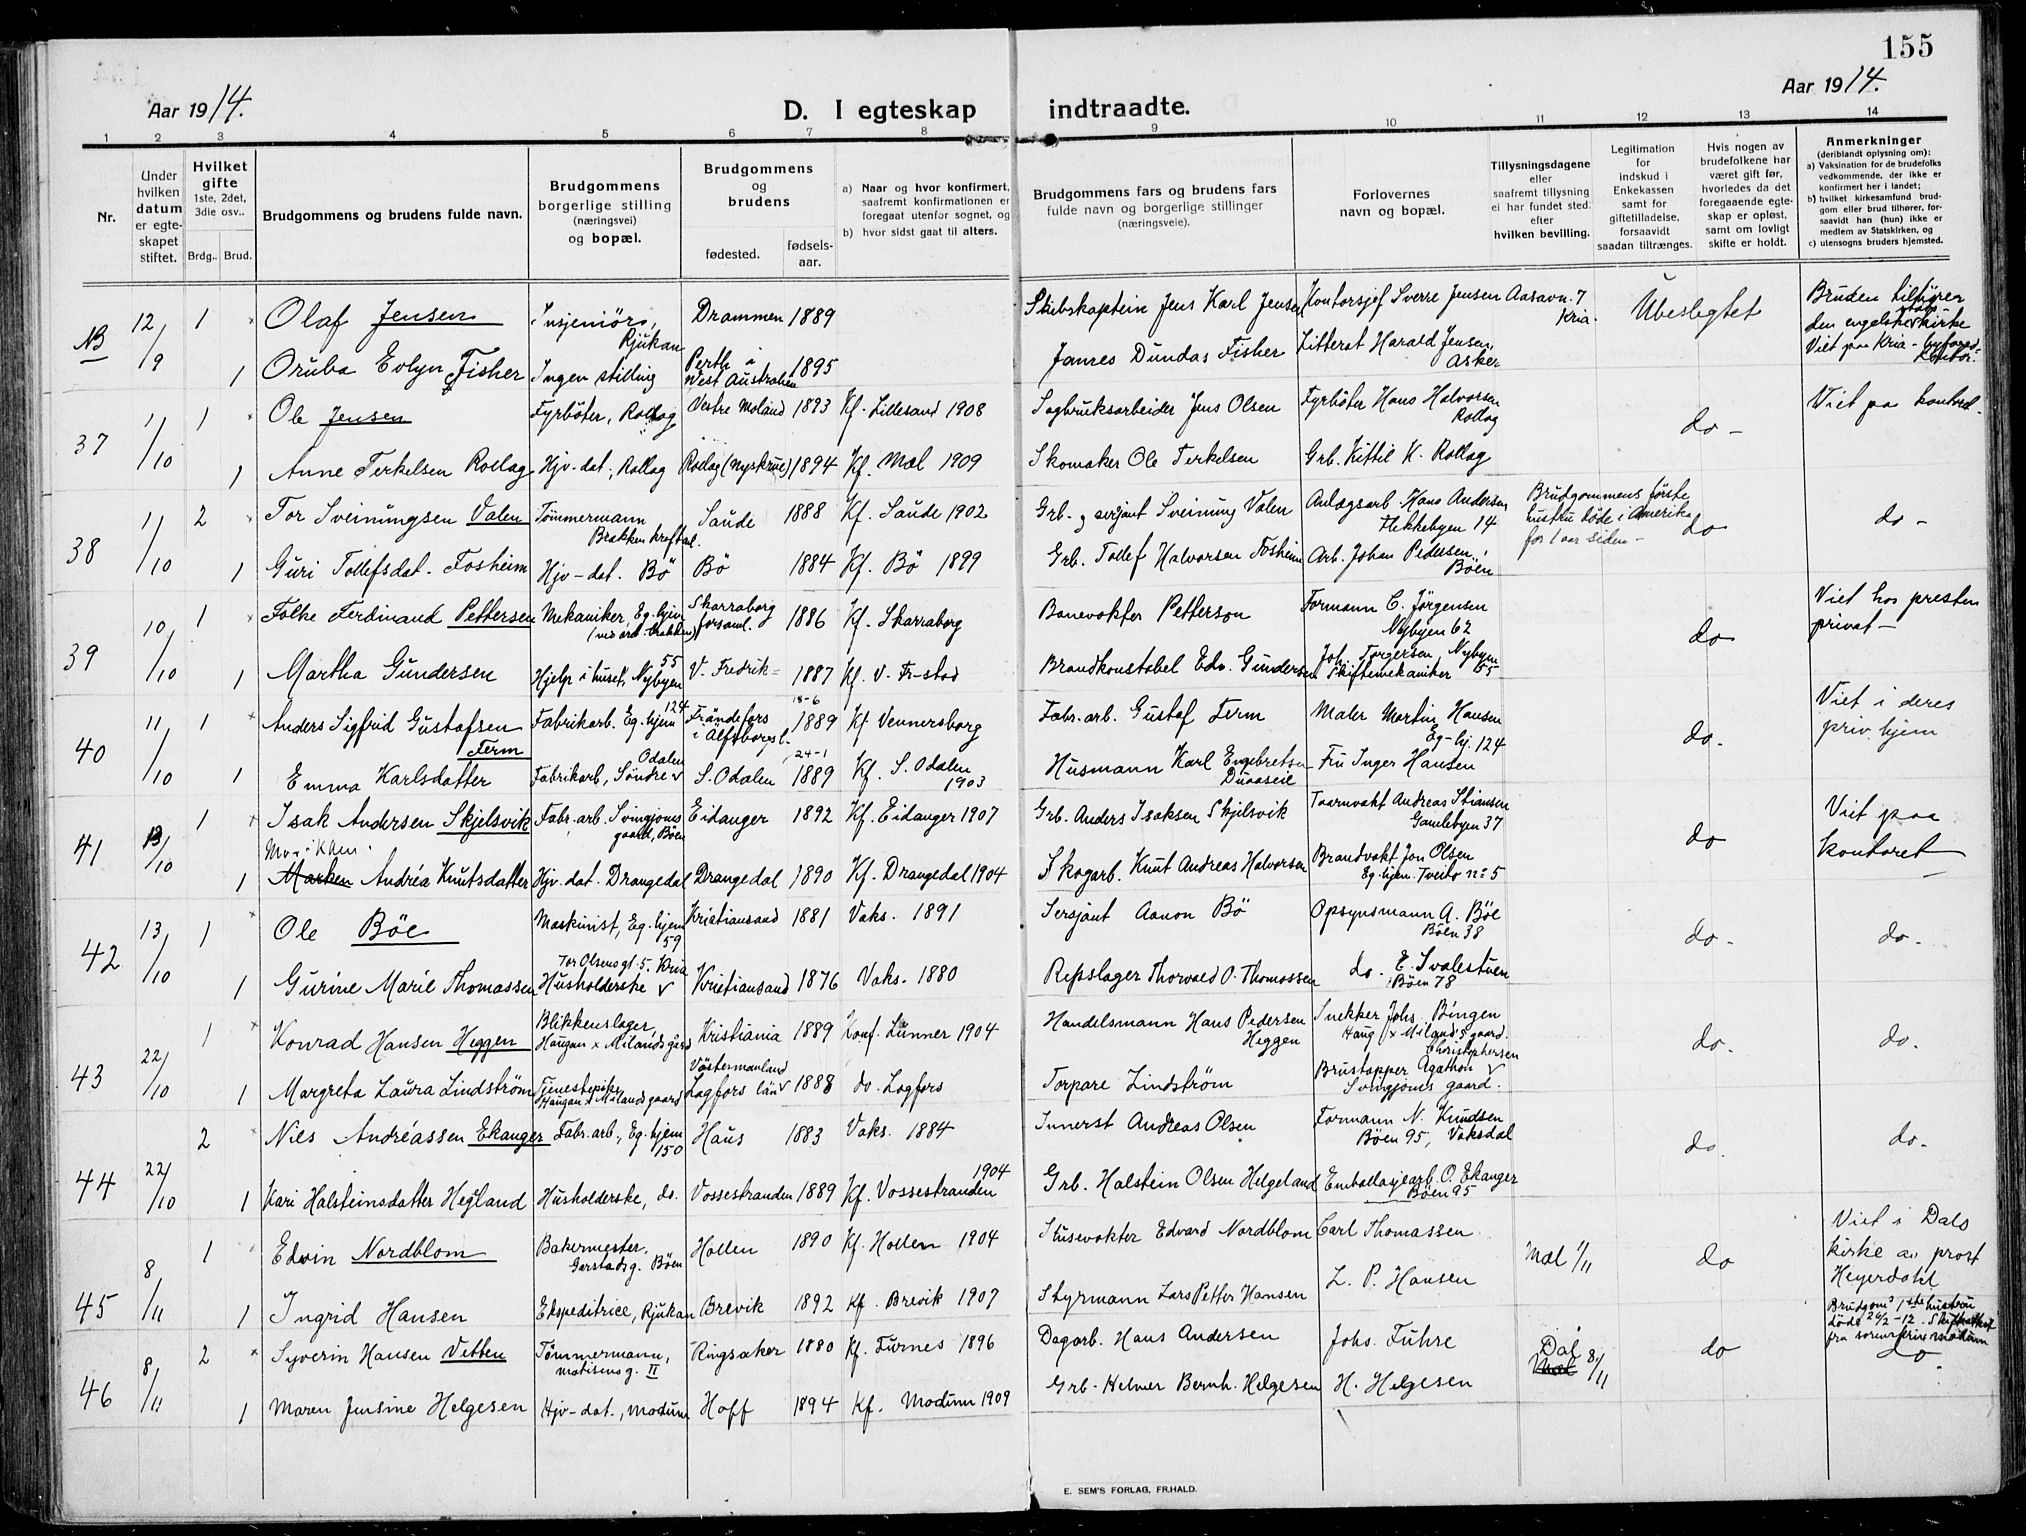 155
Aar 1914.
Aar 1914.
D. I egteskap indtraadte.
1 2 3 4 5 6 7 8 9 10 11 12 13 14
Nr.
Under hvilken datum er egte-skapet stiftet.
Hvilket gifte
1ste, 2det, 3die osv..
Brdg.. Brud.
Brudgommens og brudens fulde navn.
Brudgommens borgerlige stilling (næringsvei) og bopæl.
Brudgommens og brudens
fødested. fødsels-aar.
a) Naar og hvor konfirmert, saafremt konfirmationen er foregaat utenfor sognet, og
b) hvor sidst gaat til alters.
Brudgommens fars og brudens fars fulde navn og borgerlige stillinger (næringsveie).
Forlovernes navn og bopæl.
Tillysningsdagene eller saafremt tillysning ei har fundet sted. efter hvilken bevilling.
Legitimation for indskud i Enkekassen samt for giftetilladelse, forsaavidt saadan tiltrænges.
Hvis nogen av brudefolkene har været gift før, hvorledes da det foregaaende egte-skap er opløst, samt om lovligt skifte er holdt.
Anmerkninger
(deriblandt oplysning om):
a) Vaksination for de brudefolks vedkommende, der ikke er konfirmert her i landet;
b) hvilket kirkesamfund brud-gom eller brud tilhører, for-saavidt han (hun) ikke er medlem av Statskirken, og
c) utensogns bruders hjemsted.
NB 12/9 1 Olaf Jensen Insjeniör, Rjukan Drammen 1889 Skibskaptein Jens Karl Jensen Kontorsjef Sverre Jensen Aasavn. 7 Kria. Ubeslegtet Bruden tilhører den engelske kirke
1 Oruba Evlyn Fisher Ingen stilling Perth i West Australien 1895 James Dundas Fisher Litterat Harald Jensen, Asker Viet paa Kria - byfoged-kontor.
37 1/10 1 Ole Jensen Fyrböter, Rollag Vestre Moland 1893 Kf. Lillesand 1908 Sagbruksarbeider Jens Olsen Fyrböter Hans Halvorsen Rollag do - Viet pa kontoret.
1 Anne Terkelsen Rollag Hjv-dat., Rollag Rollag (Nyskrue) 1894 Kf. Mæl 1909 Skomaker Ole Terkelsen Grb. Kittil K. Rollag
38 1/10 2 Tor Sveinungsen Valen Tömmermann Saude 1888 Kf. Saude 1902 Grb. og serjant Sveinung Valen Anlægsarb. Hans Andersen Flekkebyen 14 Brudgommens förste hustru döde i Amerika for 1 aar siden - do do -
1 Guri Tollefsdat. Fosheim Hjv-dat. Bö Bö 1884 Kf. Bö 1899 Grb. Tollef Halvorsen Fosheim Arb. Johan Pedersen, Böen
39 10/10 1 Folke Ferdinand Pettersen Mekaniker, Eg. hjem Skarraborg forsaml. 1886 Kf. Skarraborg Banevokter Petterson Formann C. Jörgensen Nybyen 62 do Viet hos presten privat -
1 Martha Gundersen Hjelp i huset, Nybyen 55 V. Fredrik= 1887 Kf. V. Fr-stad Brandkonstabel Edv. Gundersen Joh. Torgersen, Nybyen 65 Skiftemekaniker
40 11/10 1 Anders Sigfrid Gustafsen Ferm Fabrikarb. Eg. hjem 124 Frändefors i Älfsborgsl. 18-6 1889 Kf Vennersborg Fabr. arb. Gustaf Ferm Maler Martin Hansen Eg-hj. 124 do. Viet i deres priv. hjem
1 Emma Karlsdatter Fabrikarb, Söndre Odalen S. Odalen 24-1 1889 Kf. S. Odalen 1903 Husmann Karl Engebretsen Fru Inger Hansen
41 13/10 1 Isak Andersen Skjelsvik Fabr. arb. Svingjoms gaard, Böen Eidanger 1892 Kf. Eidanger 1907 Grb. Anders Isaksen Skjelsvik Taarnvakt Andreas Stiansen Gamlebyen 37 do Viet paa kontoret
1 Marken Andréa Knutsdatter Hjv. dat. Drangedal Drangedal 1890 Kf. Drangedal 1904 Skogarb. Knut Andreas Halvorsen Brandvakt Jon Olsen Eg. hjem. Tveito no 5
42 13/10 1 Ole Böe Maskinist, Eg. hjem 59 Kristiansand 1881 Vaks. 1891 Sersjant Aanon Bö Opsynsmann A. Böe Böen 38 do. do.
1 Gurine Marie Thomassen Tor Olsens gt. 5. Kria Husholderske Kristiansand 1876 Vaks. 1880 Repslager Thorvald O. Thomassen do. E. Svalestuen Böen 78
43 22/10 1 Konrad Hansen Heggen Blikkenslager, Haugan x Milands gård Kristiania 1889 Konf. Lunner 1904 Handelsmann Hans Pedersen Heggen Snekker Johs. Bingen Haug x Miland's gaard. do. do.
1 Margreta Laura Lindström Tjenestepike Haugan x Milands gaard Västermanland Logfors län 1888 do. Logfors Torpare Lindström Brustapper Agathon Christophersen Svingjoms gaard.
44 22/10 2 Nils Andréassen Ekanger Fabr. arb., Eg. hjem 150 Haus 1883 Vaks. 1884 Innerst Andreas Olsen Formann N. Knudsen Böen 95, Vaksdal do. do.
1 Kari Halsteinsdatter Hegland Husholderske, do. Vossestranden 1889 Kf. Vossestranden 1904 Grb. Halstein Olsen Helgeland Emballasjearb. O. Ekanger Böen 95
45 8/11 1 Edvin Nordblom Bakermester, Garstadsg. Böen Hollen 1890 Kf. Hollen 1904 Slusevokter Edvard Nordblom Carl Thomassen Mæl 1/11 do Viet i Dals kirke av prost Heyerdahl
1 Ingrid Hansen Ekspeditrice, Rjukan Brevik 1892 Kf. Brevik 1907 Styrmann Lars Petter Hansen L. P. Hansen
46 8/11 2 Syverin Hansen Vetten Tömmermann, Matisens g. II Ringsaker 1880 Kf. Furnes 1896 Dagarb. Hans Andersen Johs. Fuhre Dal Mæl 8/11 do Brudgoms 1ste hustru döde 26/2-12. Skifteattest fra sorenskriver Modum do
1 Maren Jensine Helgesen Hjv-dat., Modum Hoff 1894 Kf. Modum 1909 Grb. Helmer Bernh. Helgesen H. Helgesen
E. SEM'S FORLAG, FR.HALD.